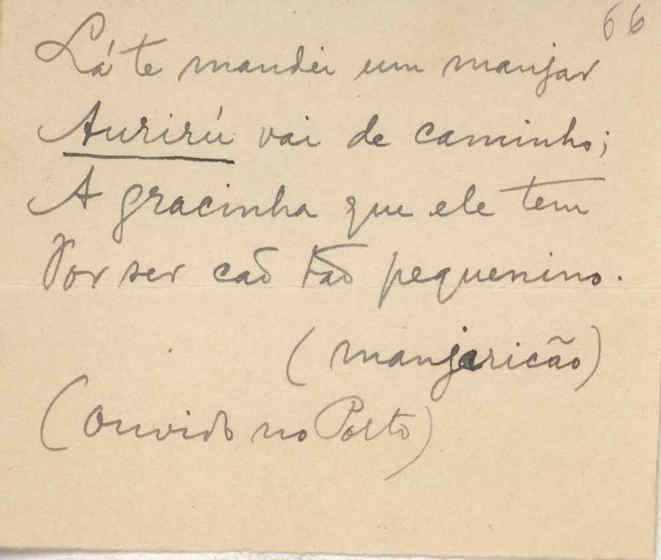 66
Lá te mandei um manjar
Aurirú vai de caminho;
A gracinha que ele tem
Por ser caõ taõ pequenino.
(manjaricão)
(Ouvido no Porto)